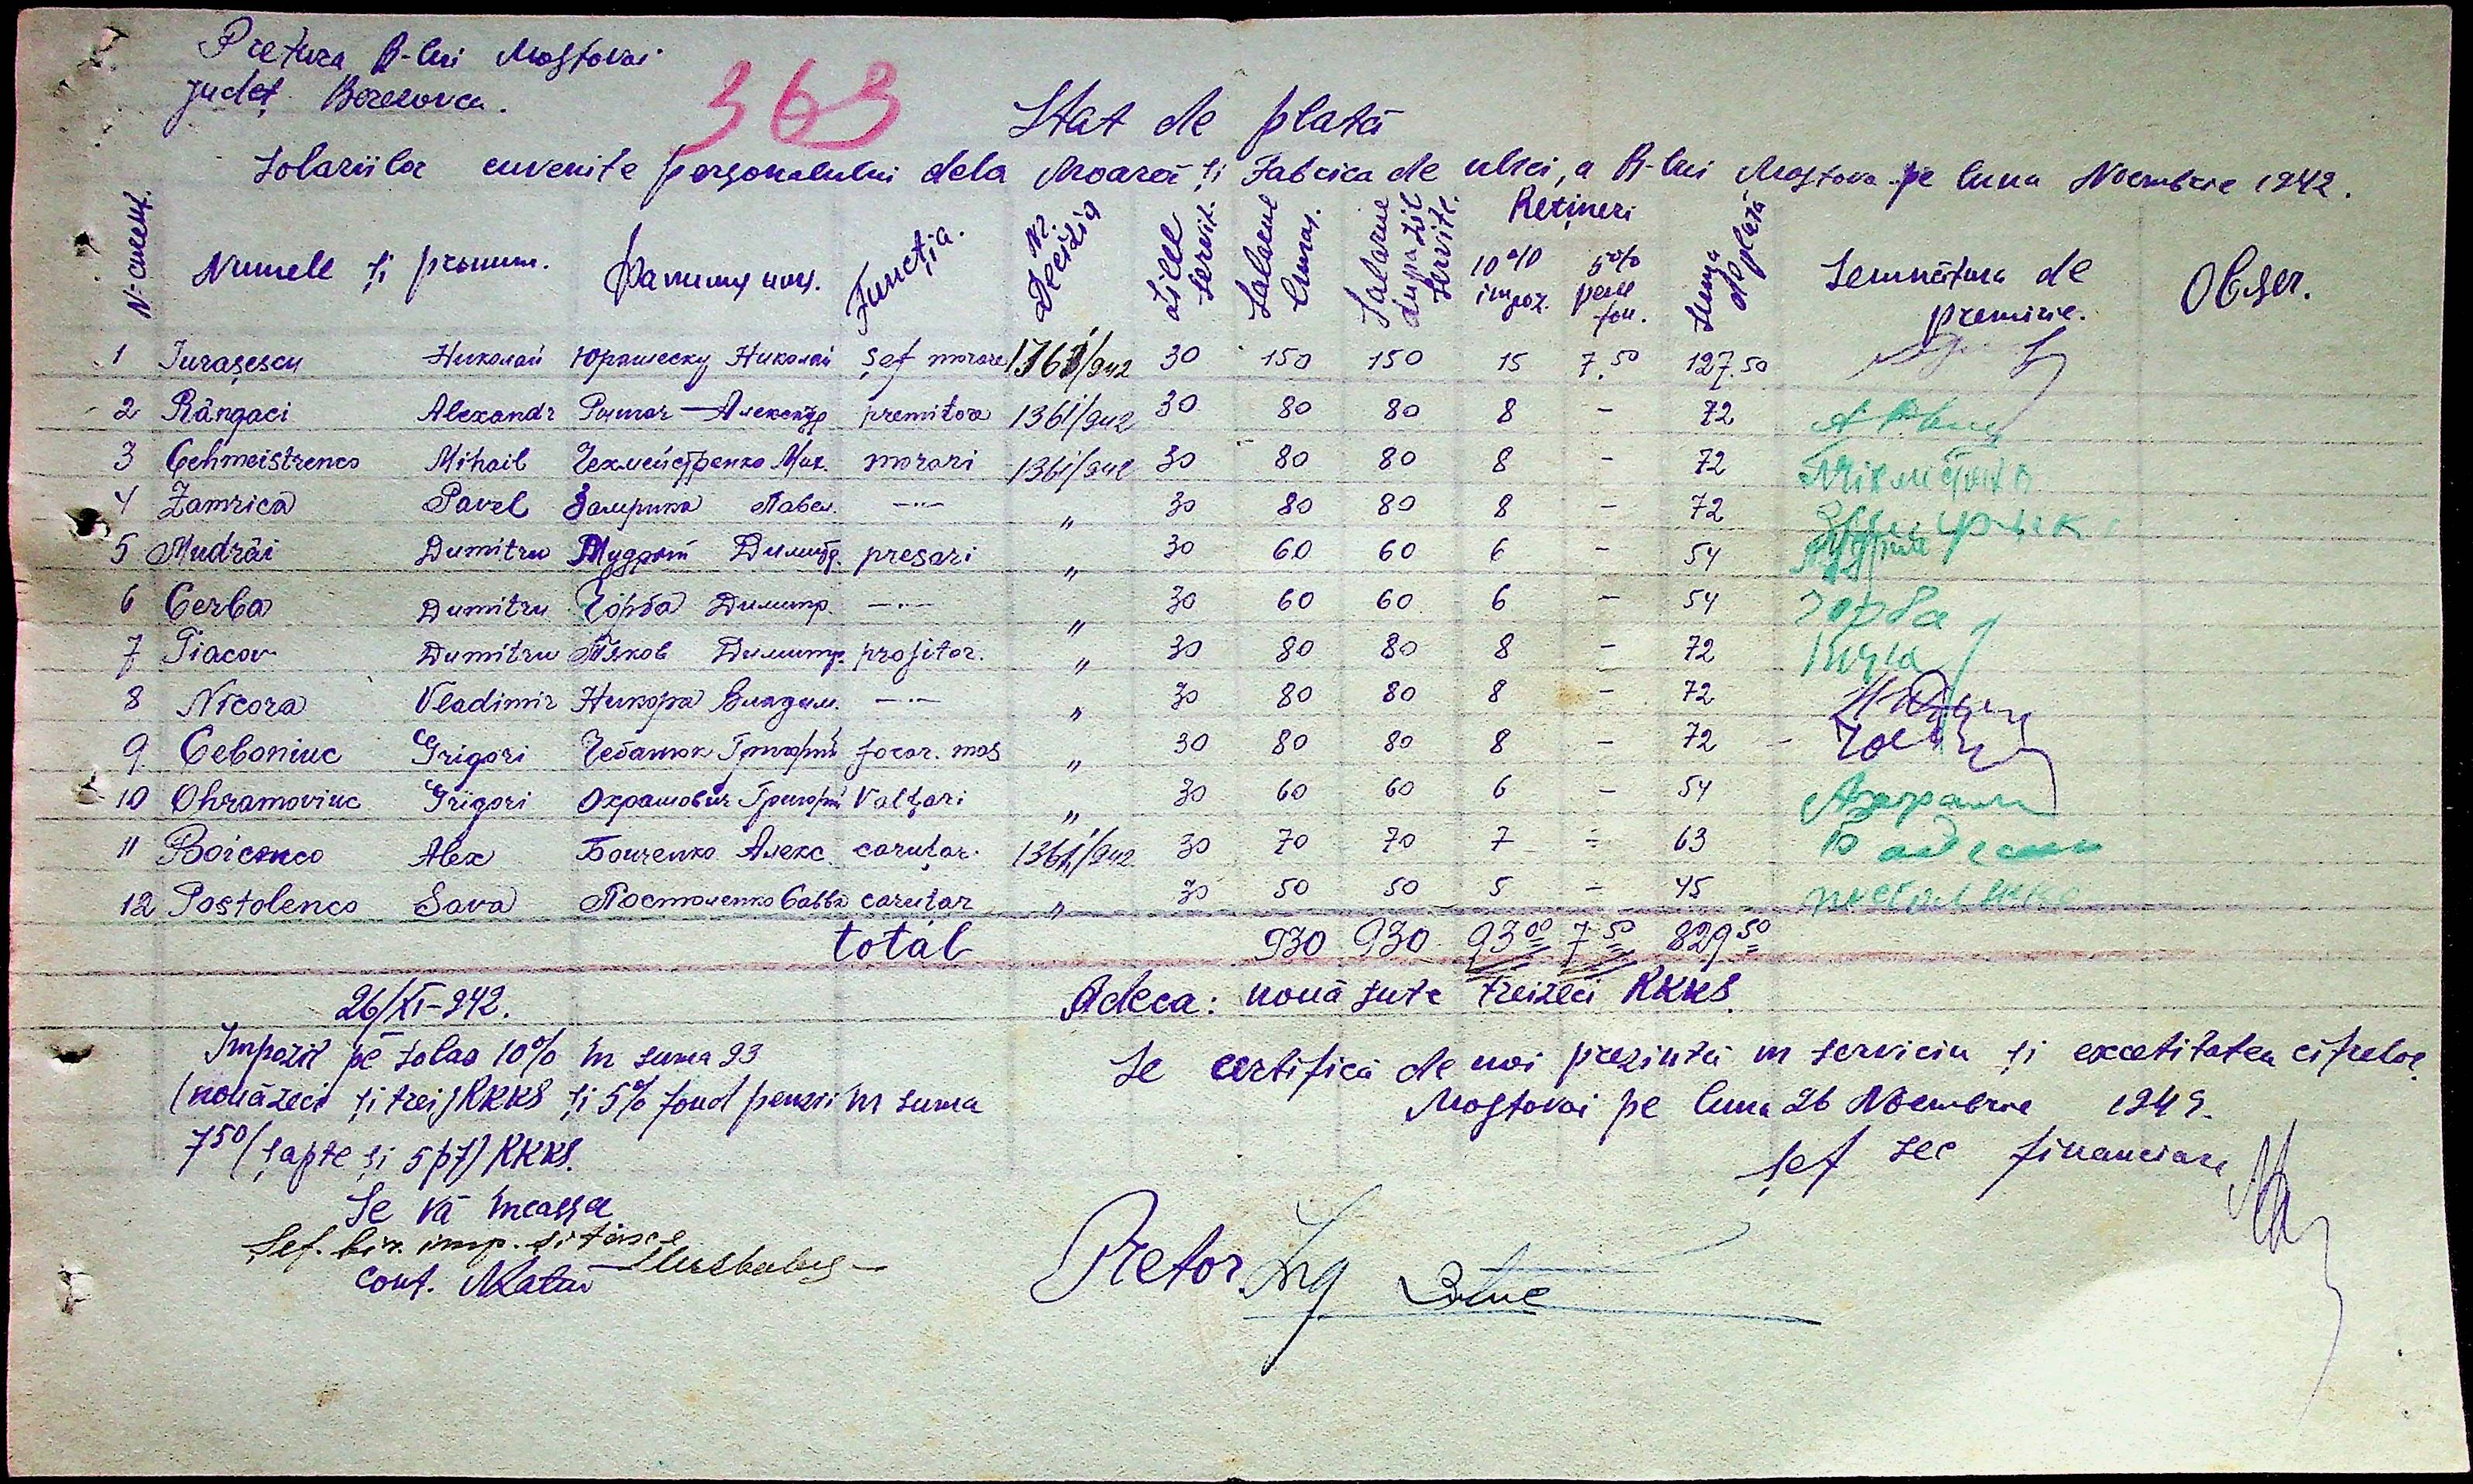 Pretura R-lui Mostovoi
județ Berezovca.
363
Stat de plată
Solariilor cuvenite personalului dela Moară și Fabrica de ulei, a R-lui Mostova pe luna Noembrie 1942.
Nr. curent. Numele și pronum. Фамилия имя. Funcția. Nr. Decizia Zile servit. Salarul lunar. Salarul dupa zile servite. Rețineri 10% impoz. 5% pens fon. Suma de plată Semnătura de premire. Obser.
1 Iurașescu Николай Юрашеску Николай șef morare 1361/942 30 150 150 15 7.50 127.50
2 Rângaci Alexandr Рынгач Александр premitor 1361/942 30 80 80 8 - 72
3 Cehmeistrenco Mihail Чехмейстренко Мих. morari 1361/942 30 80 80 8 - 72
4 Zamrica Pavel Замрика Павел. —〃— 〃 30 80 80 8 - 72
5 Mudrâi Dumitru Мудрый Димитр. presari 〃 30 60 60 6 - 54
6 Cerba Dumitru Чорба Димитр. —〃— 〃 30 60 60 6 - 54 Чорба
7 Piacov Dumitru Пяков Димитр. projitor. 〃 30 80 80 8 - 72
8 Nicora Vladimir Никора Владим. —〃— 〃 30 80 80 8 - 72
9 Cebaniuc Grigori Чебанюк Григорий focar. mos 〃 30 80 80 8 - 72
10 Ohramoviuc Grigori Охрамович Григорий Valțari 〃 30 60 60 6 - 54
11 Boicenco Alex Бойченко Алекс. caruțar. 1361/942 30 70 70 7 = 63
12 Postolenco Sava Постоленко Савва caruțar 〃 30 50 50 5 = 45
total 930 930 93 00 7 50 829 50
26/XI-942.
Adeca: nouă sute treizeci RKKS.
Impozit pe solar 10% în suma 93
(nouăzeci și trei) RKKS și 5% fond pensii în suma
7 50 (șapte și 5 pf) RKKS.
Se vă incassa
Șef. bir. imp. și taxe
cont.
Se certifică de noi prezintă în serviciu și exactitatea cifrelor.
Mostovoi pe luna 26 Noembrie 1942.
șef sec financiare
Pretor. Ing